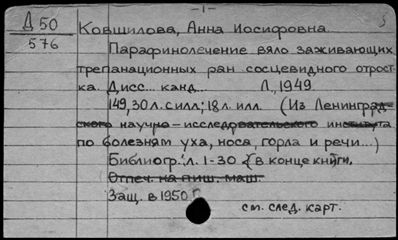 - 1 -
Д 50
576
Ковшилова, Анна Иосифовна
Парафинолечение вяло заживающих
трепанационных ран сосцевидного отрост-
ка. Дисс... канд... Л., 1949
149, 30 л. с илл; 18 л. илл. (Из Ленинград-
ского научно-исследовательского института
по болезням уха, носа, горла и речи...)
Библиогр: л. 1-30 (в конце книги.
Отпеч. на пиш. маш.
Защ. в 1950 г.
см. след. карт.